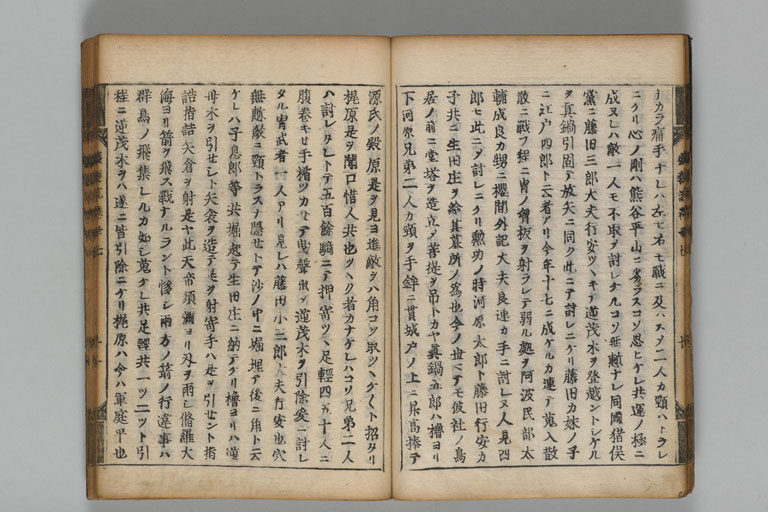 カラ痛手ナレハ左モ右モ職ニ及ハスソ二人カ頸ハトラレ
ニケリ心ノ剛ハ熊谷平山ニ劣ラスコソ思ヒケレ共運ノ極ニ
成ヌレハ敵一人モ不取シテ討レケルコソ無慙ナレ同國猪俣
黨ニ藤田三郎大夫行安ツヽキテ逆茂木ヲ登越ントシケル
ヲ真鍋引固テ放矢ニ同ク此ニテ討レニケリ藤田カ妹ノ子
ニ江戸四郎ト云者アリ今年十七ニ成ケルカ連テ蒐入散
散ニ戦フ程ニ冑ノ 板ヲ射ラレテ弱ル処ヲ阿波民部太
輔成良カ甥ニ櫻間外記大夫良連カ手ニ討レヌ人見四
郎モ此ニテ討レニケリ勲功ノ時河原太郎ト藤田行安カ
子共ニ生田庄ヲ給其墓所ノ為也今ノ世マテモ彼社ノ鳥
居ノ前ニ堂塔ヲ造立ノ菩提ヲ吊トカヤ眞鍋五郎ハ櫓ヨリ
下河原兄弟二人カ頸ヲ手鉾ニ貫城戸ノ上ニ 髙捧テ
源氏ノ殿原是ヲ見ヨ進敵ヲハ角コソ取ツヽケ〱ト招タリ
梶原是ヲ聞口惜人共也ツヽク者カナケレハコソ兄弟二人
ハ討レタレトテ五百餘騎ニテ押寄ツヽ足輕四五十人ニ
腹巻キせ手楯ツカせテ曳聲出テ逆茂木ヲ引除爰ニ討レ
タル冑武者一人アリ見レハ藤田小三郎大夫行安也穴
無慙敵ニ頸トラスナ隠せトテ沙ノ中ニ堀埋テ後ニ角ト云
ケレハ子息郎等共堀起テ生田庄ニ納テケリ櫓ヨリハ逆
母木ヲ引せシト矢衾ヲ造テモヲ射寄手ハ是ヲ引せント指
詰指詰矢倉ヲ射是ヤ此天帝須弥ヨリ刃ヲ雨シ脩羅大
海ヨリ箭ヲ飛ス戰ナルラント ヲシ兩方ノ箭ノ行違事ハ
群鳥ノ飛集レルカ如シ蒐ケレ共足輕共一ツ二ツト引
程ニ逆茂木ヲハ遂ニ皆引除ニケリ梶原ハ今ハ軍庭平也